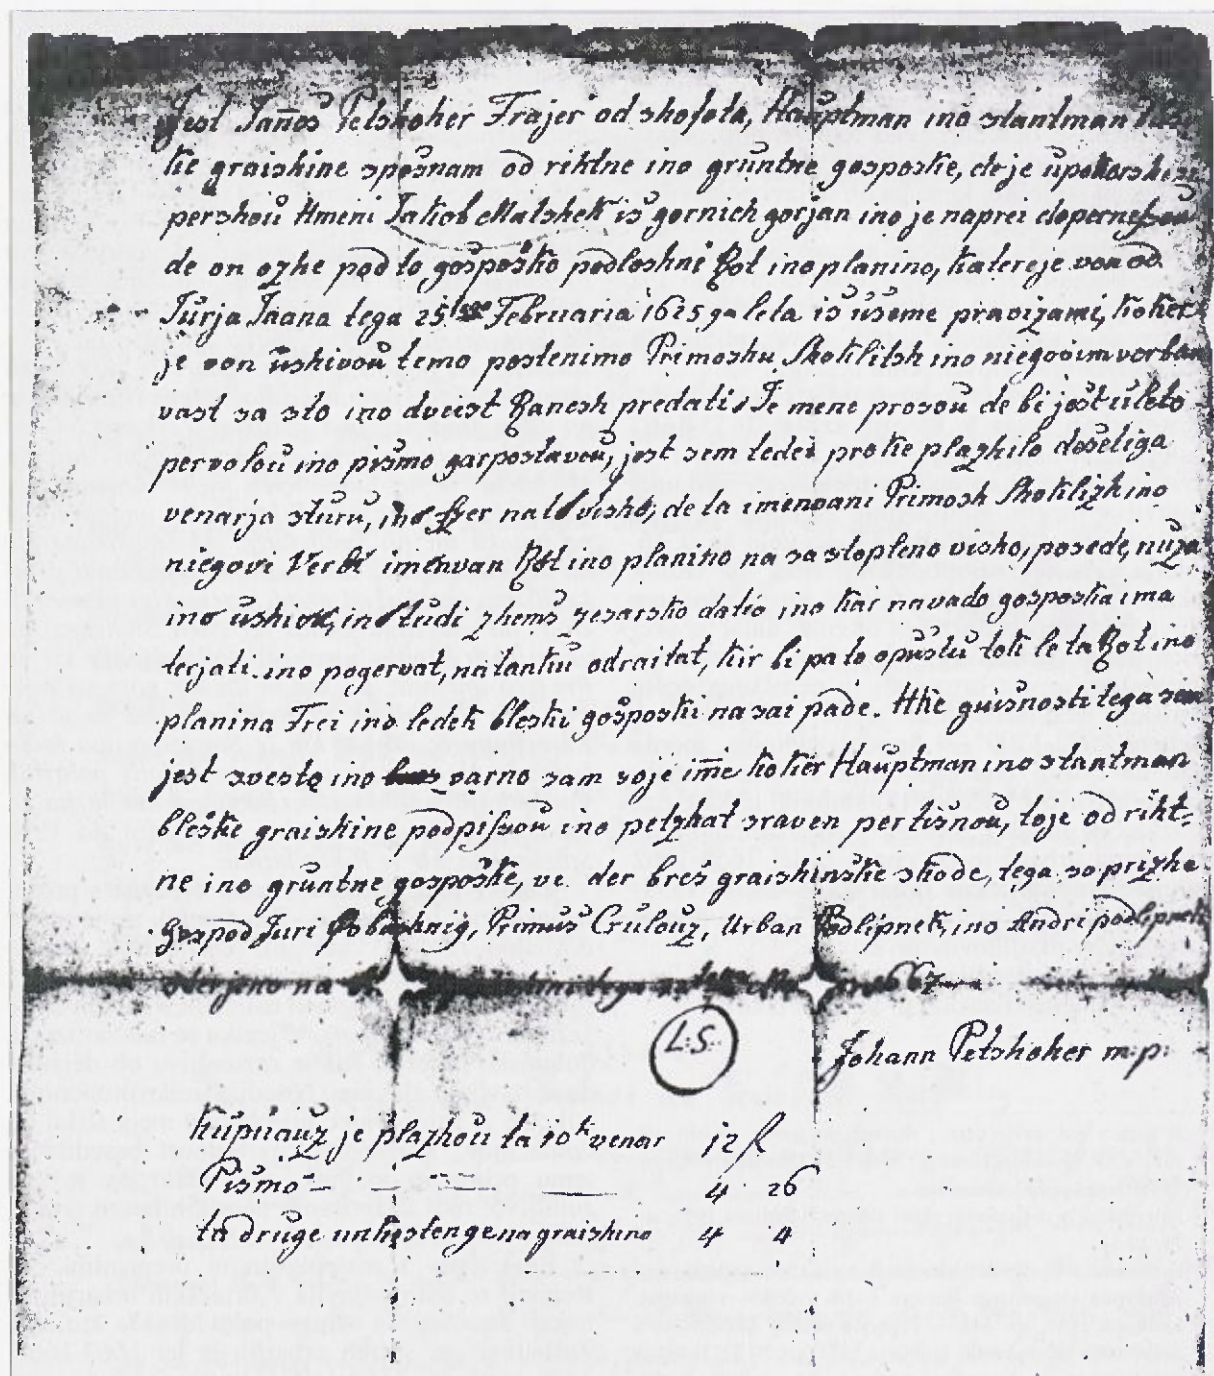 Jest Jan̄es Petshoher Frajer od shofeta, Hauptman ino stantman
ke graishine sposnam od rihtne ino gruntne gosposke, de je
pershou Kmeni Jakob Malshek is gornich gorjan ino je naprei
de on ozhe pod to gosposko podloshni Rot ino planino, katere je von od
Jurja Jaana tega 25 Februaria 1625 ga leta is useme pravizami, koker
je von ushivou temo postenimo Primoshu Skoklitsh ino niegovim
vast sa sto ino dveist Ranesh predati. Je mene prosou de bi jest uleto
pervolou ino pismo gorpostavou, jest sem tedei proke plazhilo desetiga
venarja sturu, de ta imenvani Primosh Skoklizh ino
niegovi Verbi imenvan Rot ino planino na sastopleno visho, posede, nuza
ino ushiva, ino tudi zhems zesarsko datio ino kar navado gosposka ima
terjati ino pogervat, natanku odraitat, kir bi pa to opustu tok le ta Rot ino
planina Frei ino ledek bleski gosposki nasai pade. Kke guisnosti tega sem
jest svesto ino varno sam soje im̄e koker Hauptman ino stantman
bleske graishine podpissou ino petzhat sraven pertisnou, toje od riht=
ne ino gruntne gosposke, ve der bres graishinske shode, tega so prizhe
Gospod Juri, Primus Crulouz, Urban Podlipnek, ino Andri podlipnek
na tega
L:S:
Johann Petshoher m:p:
Kupuauz je plazhou ta 10k venar 12 f
Pismo — — — — 4 26
ta druge unkostenge na graishino 4 4